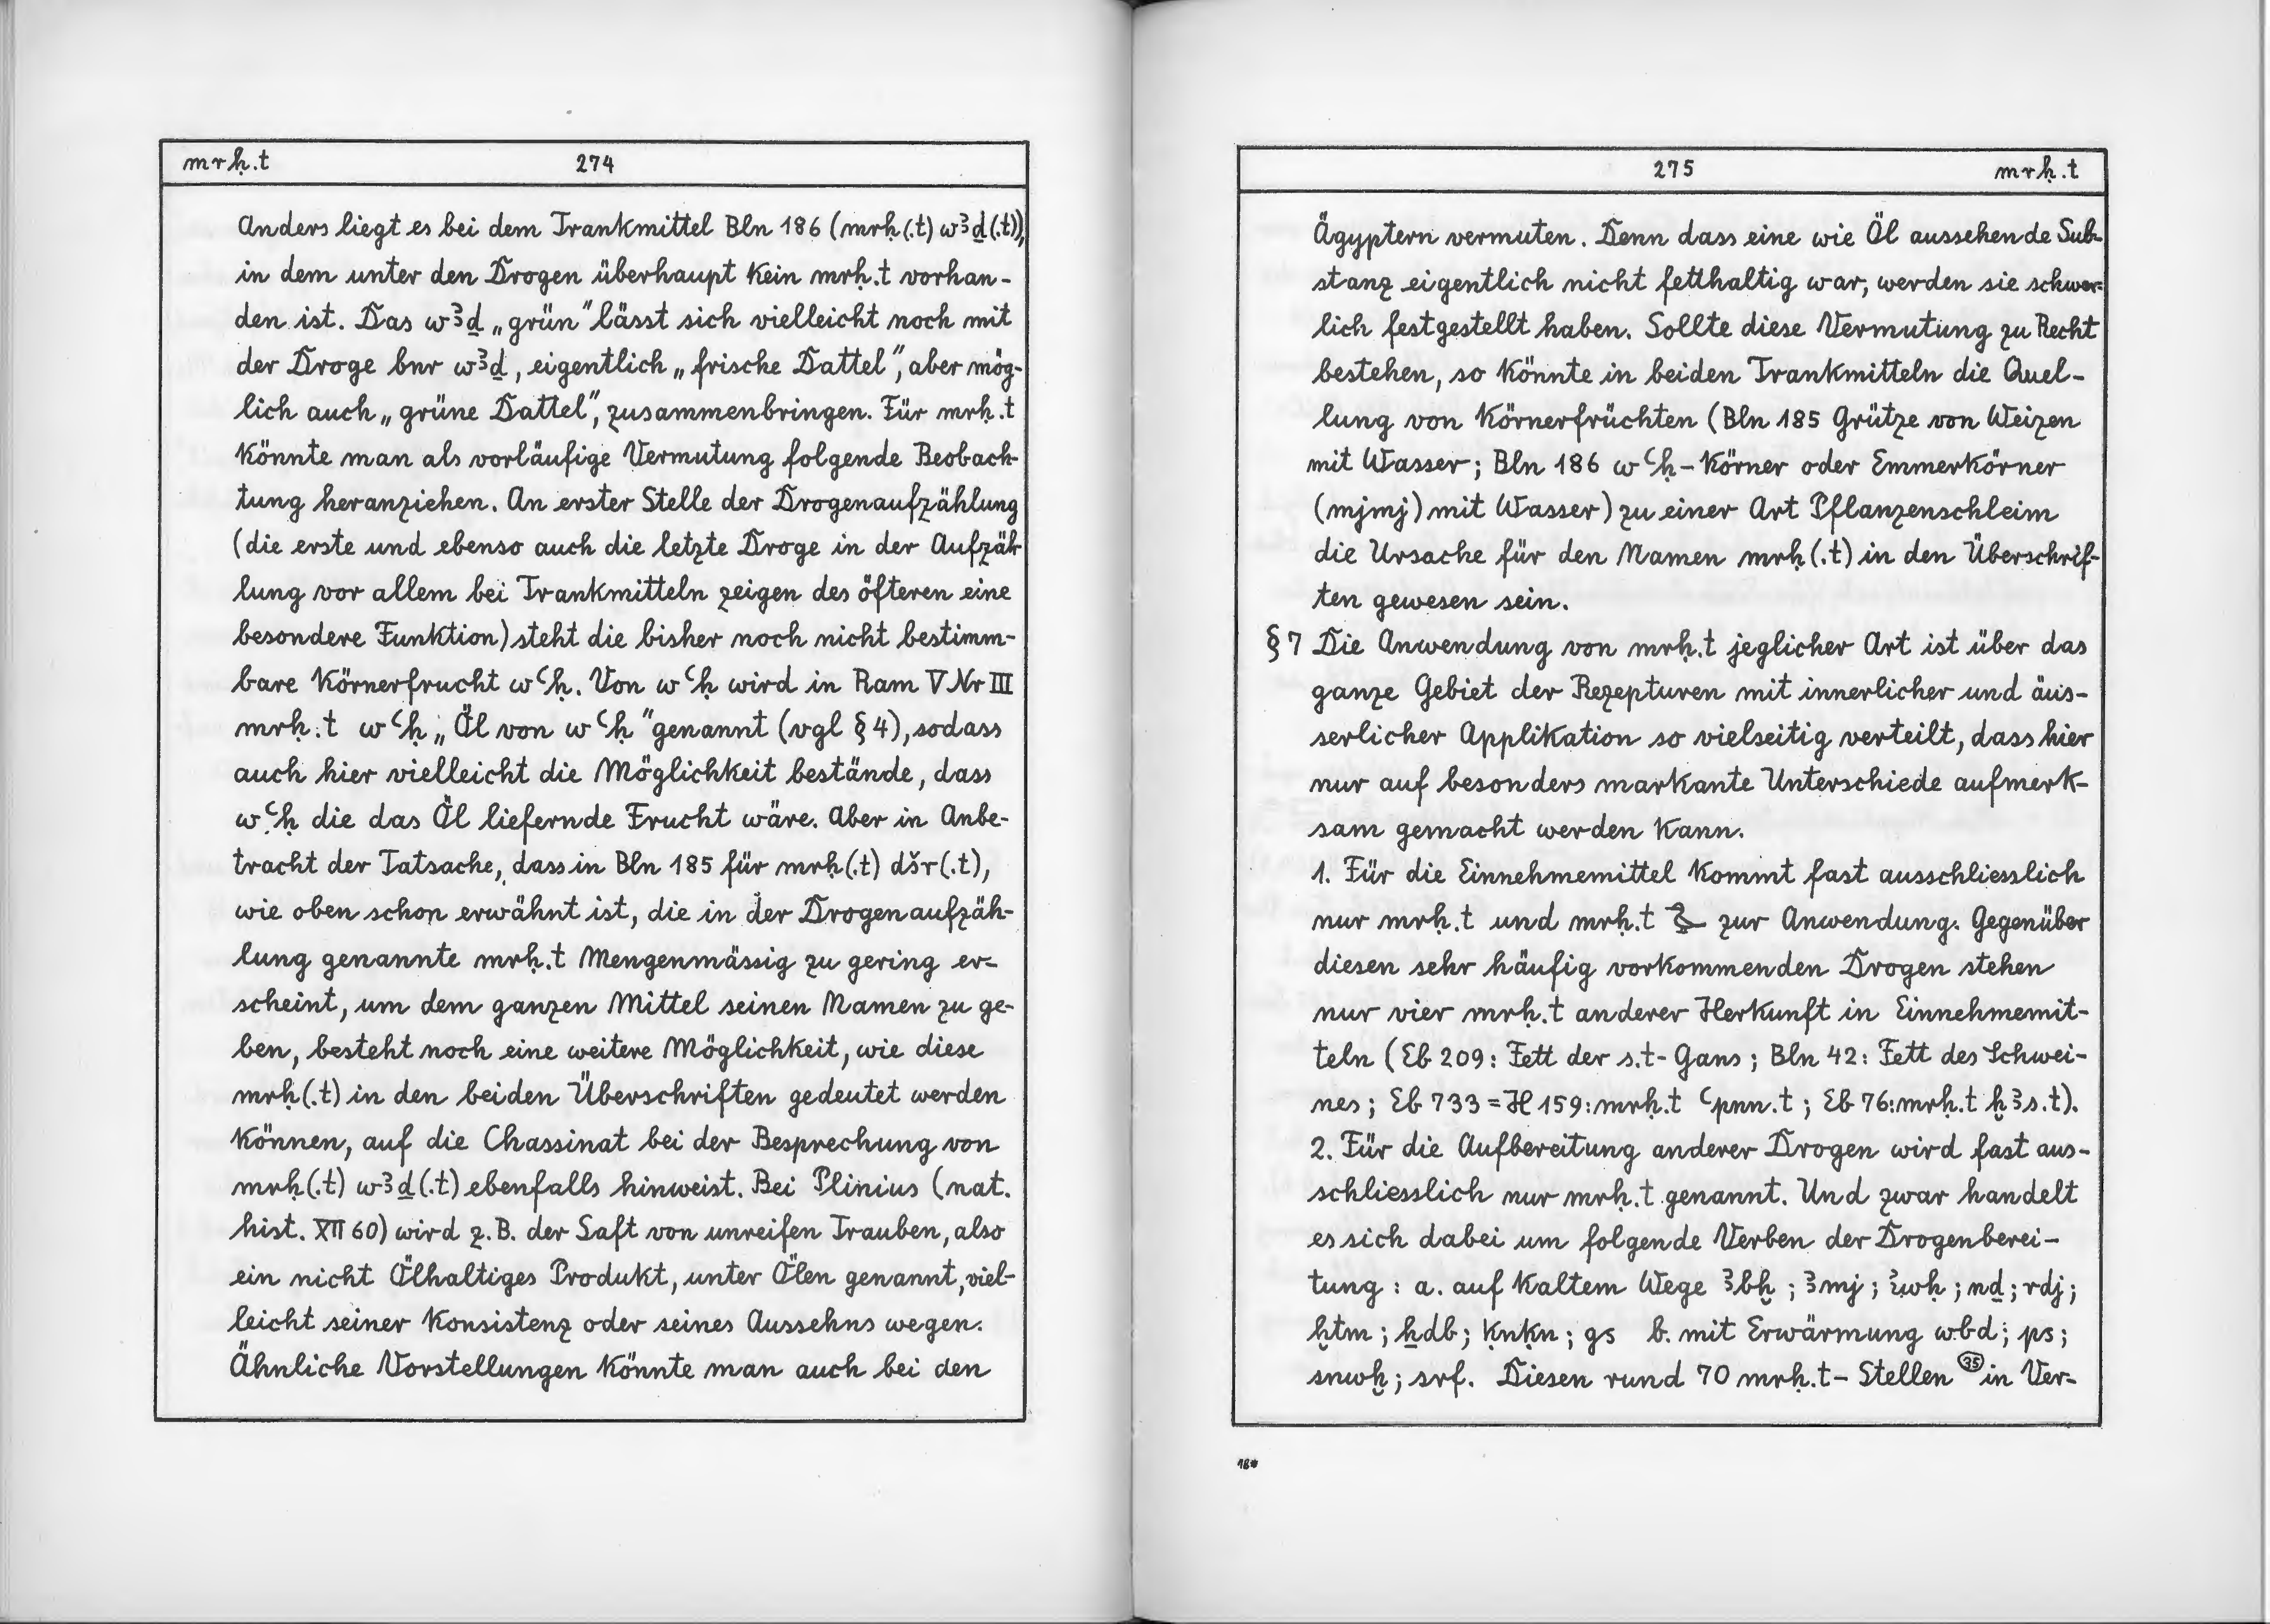 mrḥ.t 274
Anders liegt es bei dem Trankmittel Bln 186 (mrḥ(.t) wꜣḏ(.t)),
in dem unter den Drogen überhaupt kein mrḥ.t vorhan-
den ist. Das wꜣḏ „grün" lässt sich vielleicht noch mit
der Droge bnr wꜣḏ, eigentlich „frische Dattel", aber mög-
lich auch „grüne Dattel", zusammenbringen. Für mrḥ.t
könnte man als vorläufige Vermutung folgende Beobach-
tung heranziehen. An erster Stelle der Drogenaufzählung
(die erste und ebenso auch die letzte Droge in der Aufzäh-
lung vor allem bei Trankmitteln zeigen des öfteren eine
besondere Funktion) steht die bisher noch nicht bestimm-
bare Körnerfrucht wꜥḥ. Von wꜥḥ wird in Ram V Nr III
mrḥ.t wꜥḥ „Öl von wꜥḥ" genannt (vgl § 4), sodass
auch hier vielleicht die Möglichkeit bestände, dass
wꜥḥ die das Öl liefernde Frucht wäre. Aber in Anbe-
tracht der Tatsache, dass in Bln 185 für mrḥ(.t) dšr(.t),
wie oben schon erwähnt ist, die in der Drogenaufzäh-
lung genannte mrḥ.t Mengenmässig zu gering er-
scheint, um dem ganzen Mittel seinen Namen zu ge-
ben, besteht noch eine weitere Möglichkeit, wie diese
mrḥ(.t) in den beiden Überschriften gedeutet werden
können, auf die Chassinat bei der Besprechung von
mrḥ(.t) wꜣḏ(.t) ebenfalls hinweist. Bei Plinius (nat.
hist. XII 60) wird z.B. der Saft von unreifen Trauben, also
ein nicht Ölhaltiges Produkt, unter Ölen genannt, viel-
leicht seiner Konsistenz oder seines Aussehns wegen.
Ähnliche Vorstellungen könnte man auch bei den
275 mrḥ.t
Ägyptern vermuten. Denn dass eine wie Öl aussehende Sub-
stanz eigentlich nicht fetthaltig war, werden sie schwer-
lich festgestellt haben. Sollte diese Vermutung zu Recht
bestehen, so könnte in beiden Trankmitteln die Quel-
lung von Körnerfrüchten (Bln 185 Grütze von Weizen
mit Wasser; Bln 186 wꜥḥ-Körner oder Emmerkörner
(mjmj) mit Wasser) zu einer Art Pflanzenschleim
die Ursache für den Namen mrḥ(.t) in den Überschrif-
ten gewesen sein.
§ 7 Die Anwendung von mrḥ.t jeglicher Art ist über das
ganze Gebiet der Rezepturen mit innerlicher und äus-
serlicher Applikation so vielseitig verteilt, dass hier
nur auf besonders markante Unterschiede aufmerk-
sam gemacht werden kann.
1. Für die Einnehmemittel kommt fast ausschliesslich
nur mrḥ.t und mrḥ.t zur Anwendung. Gegenüber
diesen sehr häufig vorkommenden Drogen stehen
nur vier mrḥ.t anderer Herkunft in Einnehmemit-
teln (Eb 209: Fett der s.t-Gans; Bln 42: Fett des Schwei-
nes; Eb 733 = H 159: mrḥ.t ꜥpnn.t; Eb 76: mrḥ.t ḫꜣs.t).
2. Für die Aufbereitung anderer Drogen wird fast aus-
schliesslich nur mrḥ.t genannt. Und zwar handelt
es sich dabei um folgende Verben der Drogenberei-
tung: a. auf kaltem Wege ꜣbḫ; ꜣmj; iwḥ; nḏ; rdj;
ḫtm; ẖdb; ḳnḳn; gs b. mit Erwärmung wbd; ps;
snwḫ; srf. Diesen rund 70 mrḥ.t-Stellen (35) in Ver-
18*